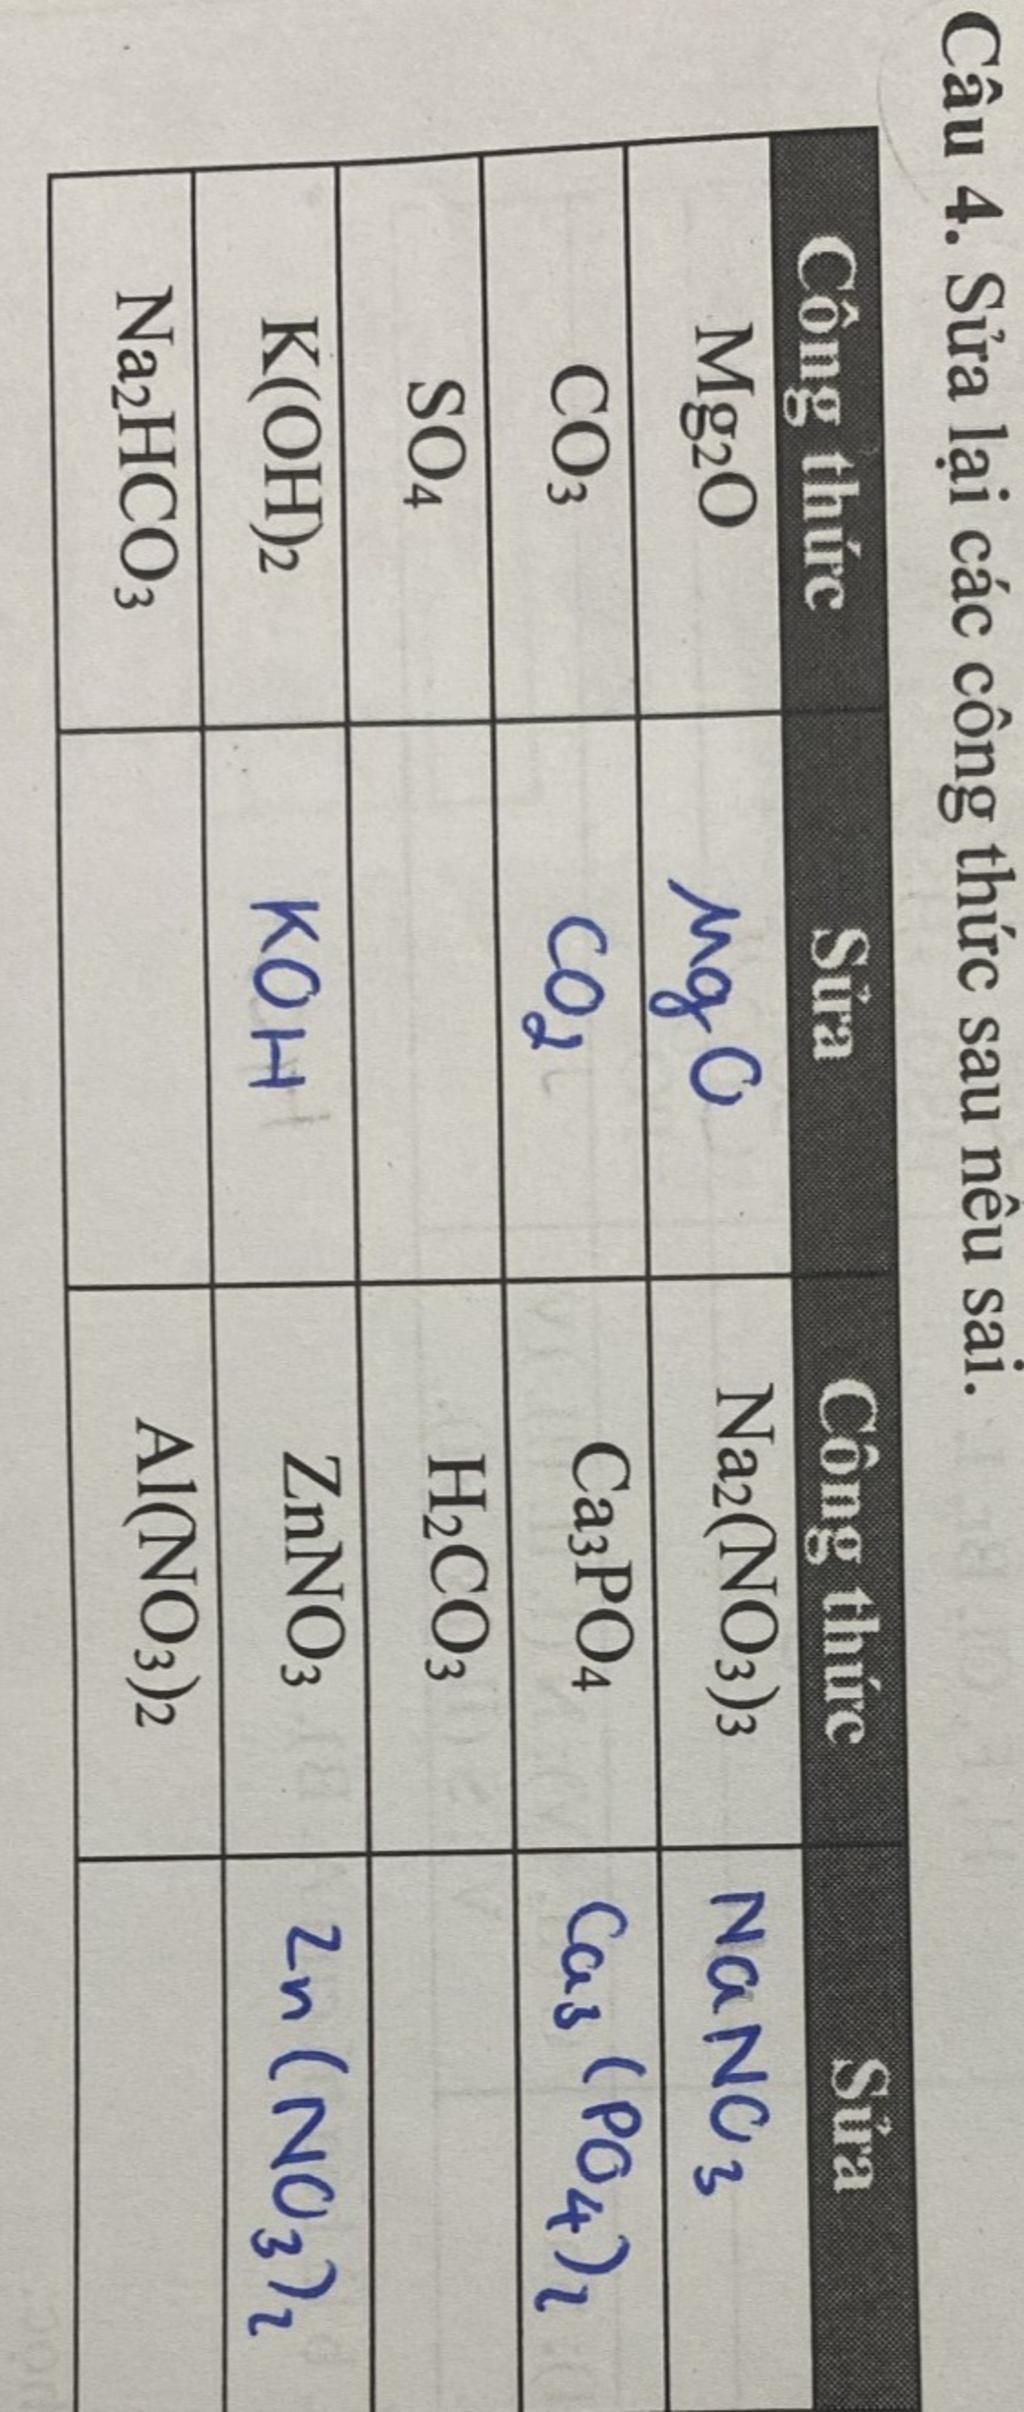 Câu 4. Sửa lại các công thức sau nêu sai.
Công thức Sửa Công thức Sửa
Mg₂O MgO Na₂(NO₃)₃ NaNO₃
CO₃ CO₂ Ca₃PO₄ Ca₃(PO₄)₂
SO₄ H₂CO₃
K(OH)₂ KOH ZnNO₃ Zn(NO₃)₂
Na₂HCO₃ Al(NO₃)₂